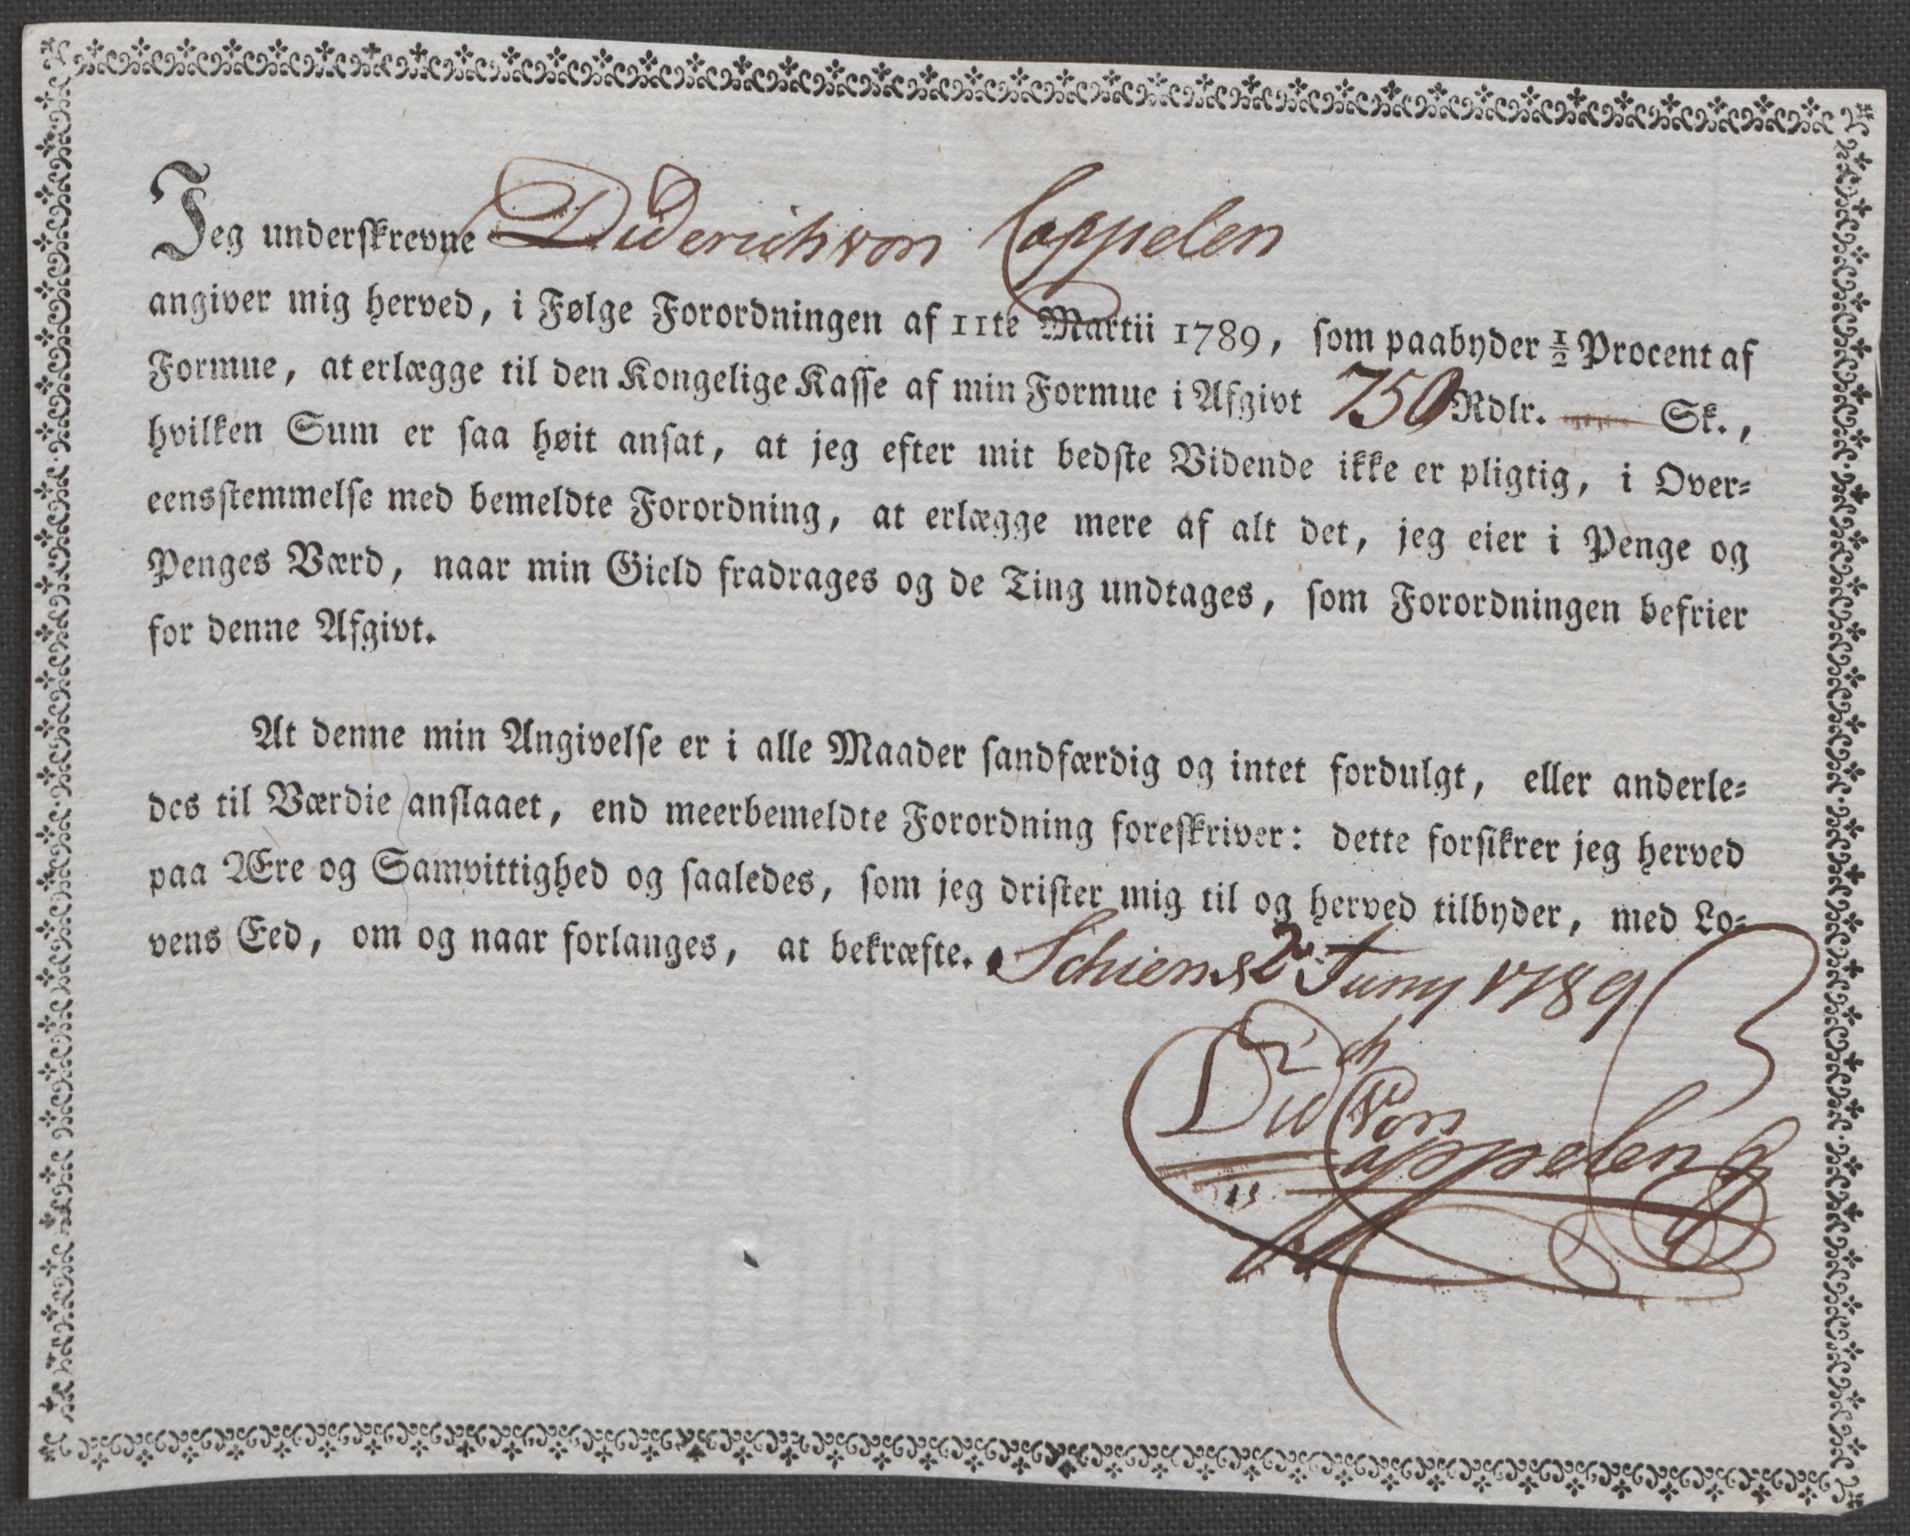 Jeg underskrevne Diderich von Cappelen
angiver mig herved, i Følge Forordningen af 11te Martii 1789, som paabyder ½ Procent af
Formue, at erlægge til den Kongelige Kasse af min Formue i Afgivt 750 Rdlr. — Sk.,
hvilken Sum er saa høit ansat, at jeg efter mit bedste Vidende ikke er pligtig, i Over-
eensstemmelse med bemeldte Forordning, at erlægge mere af alt det, jeg eier i Penge og
Penges Værd, naar min Gield fradrages og de Ting undtages, som Forordningen befrier
for denne Afgivt.
At denne min Angivelse er i alle Maader sandfærdig og intet fordulgt, eller anderle-
des til Værdie anslaaet, end meerbemeldte Forordning foreskriver: dette forsikrer jeg herved
paa Ære og Samvittighed og saaledes, som jeg drister mig til og herved tilbyder, med Lo-
vens Eed, om og naar forlanges, at bekræfte. Schien d 2 Juny 1789
Did ch von
Cappelen